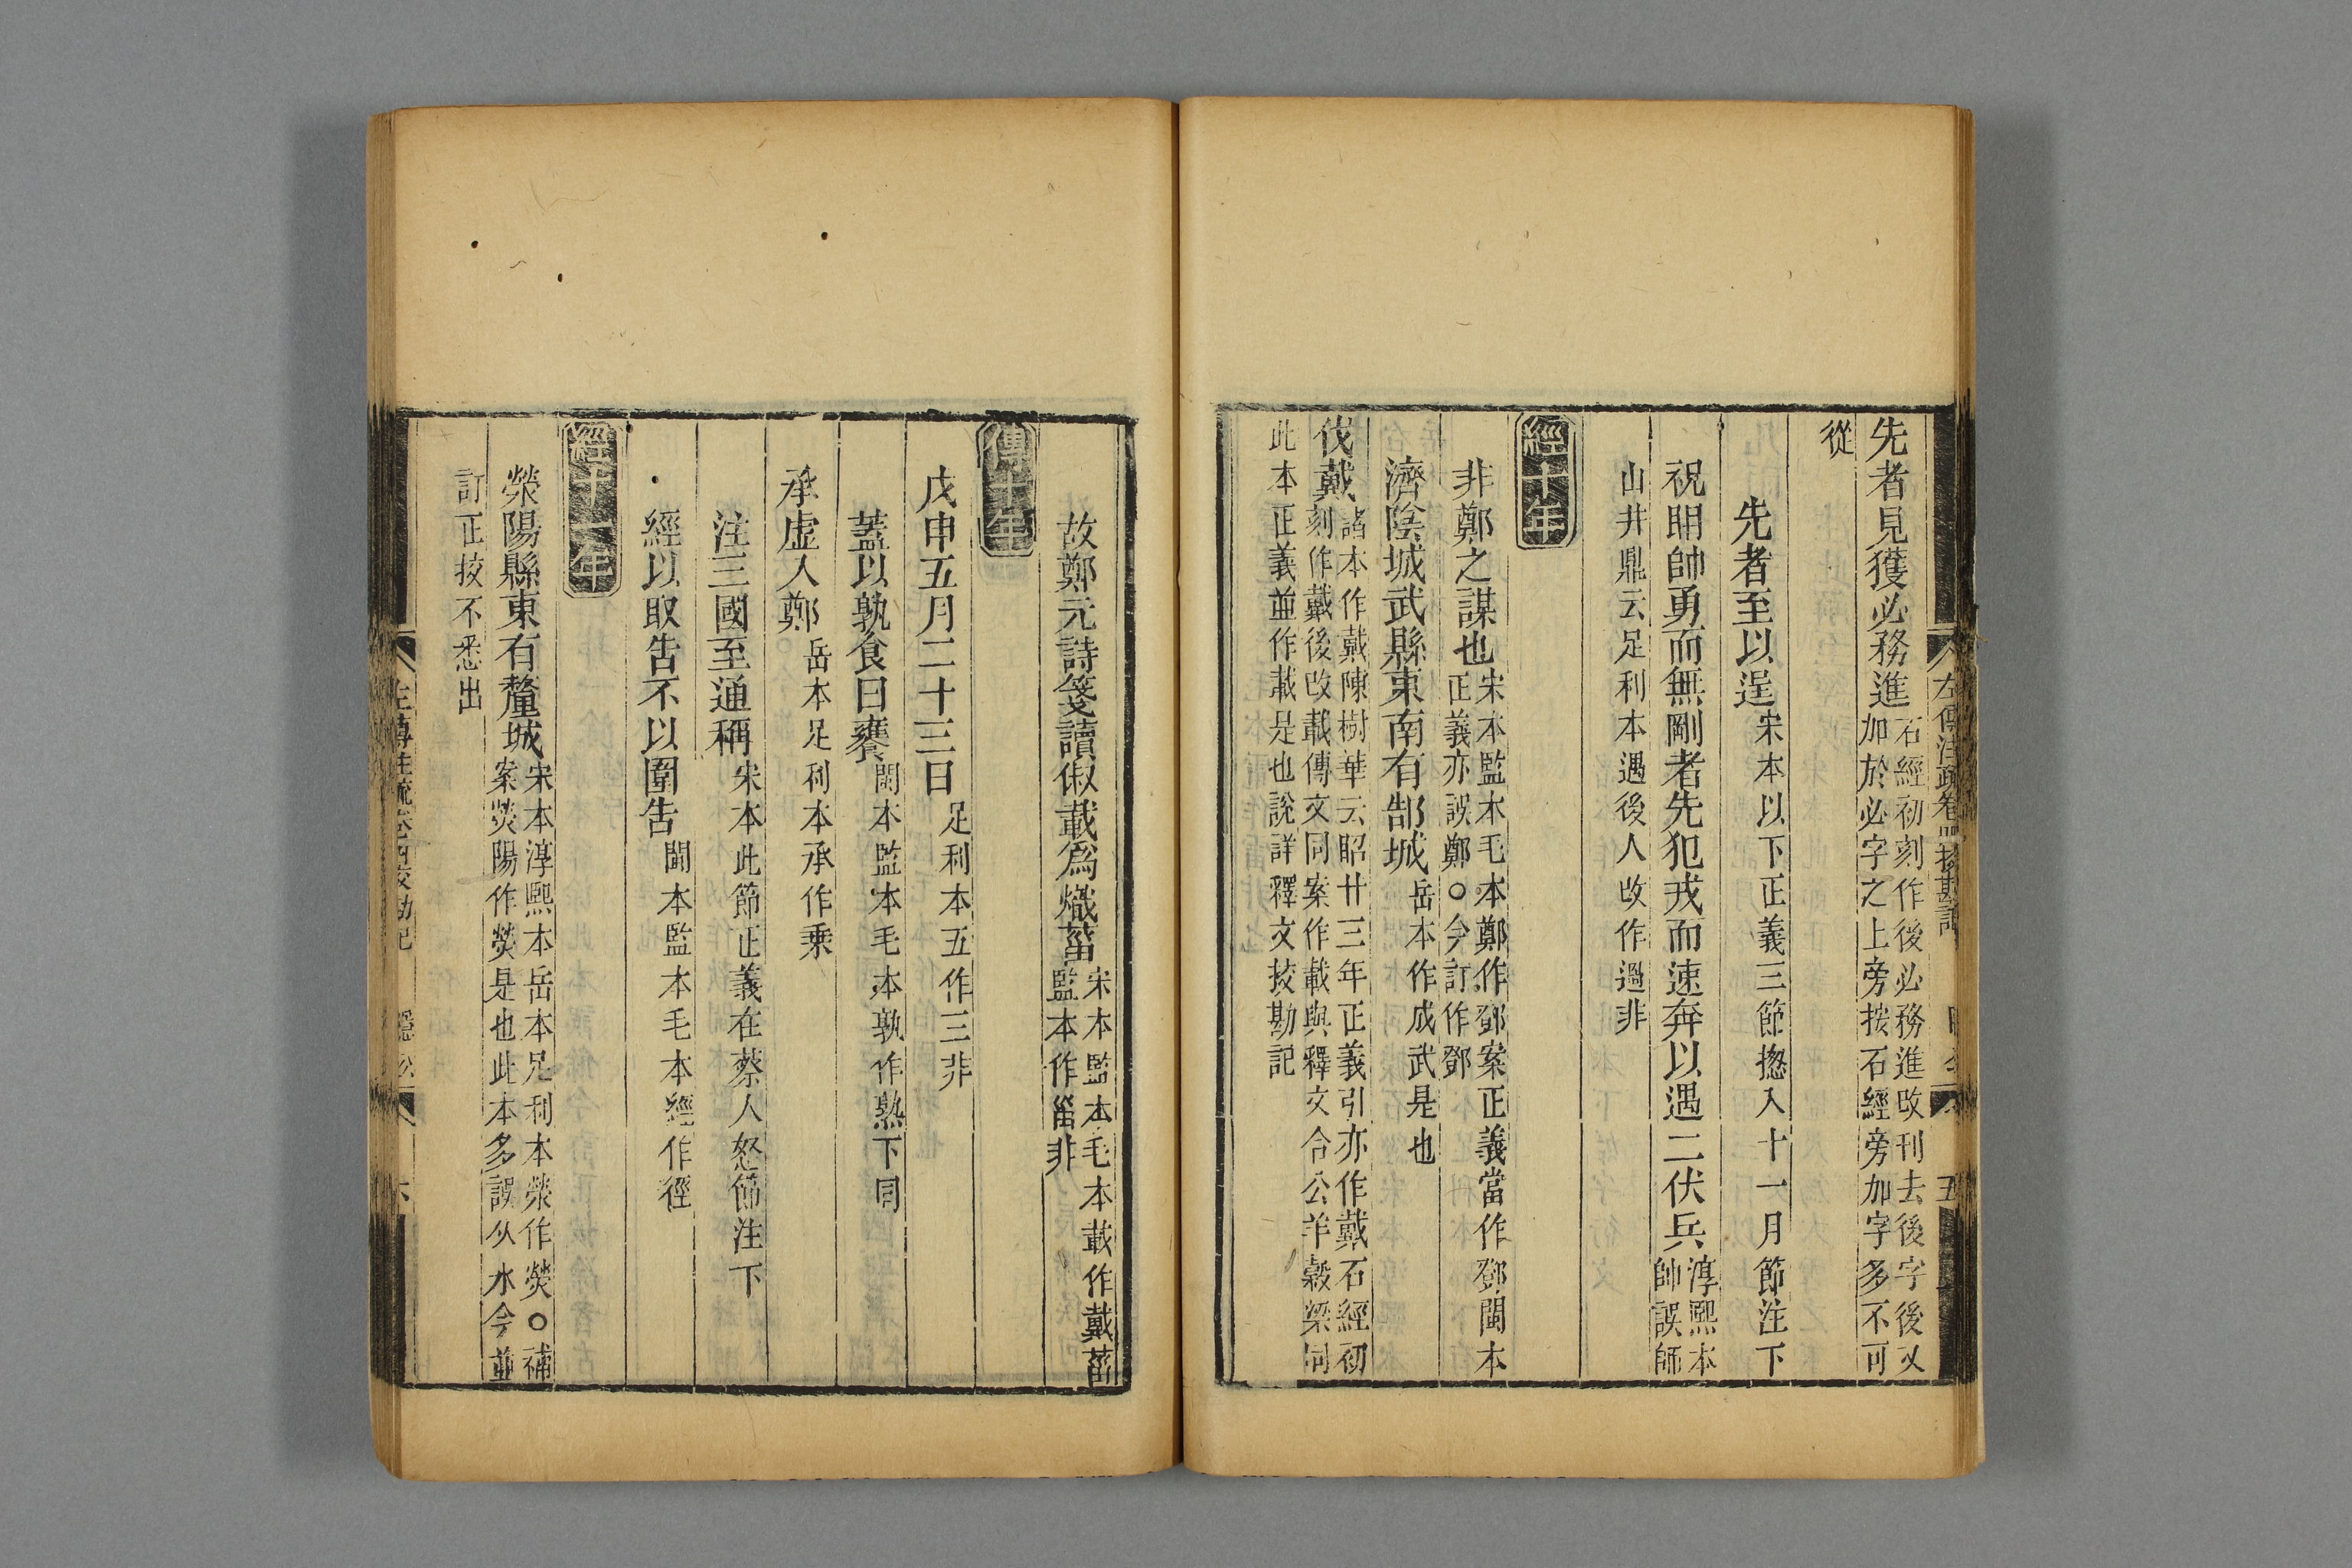 先者見獲必務進石經初刻作後必務進改刊去後字後又
加於必字之上旁按石經旁加字多不可
從
先者至以逞宋本以下正義三節揔入十一月節注下
祝聃帥勇而無剛者先犯戎而速奔以遇二伏兵淳熙本
帥誤師
山井鼎云足利本遇後人改作過非
經十年
非鄭之謀也宋本監本毛本鄭作鄧案正義當作鄧閩本
正義亦誤鄭○今訂作鄧
濟陰城武縣東南有郜城岳本作成武是也
伐戴諸本作戴陳樹華云昭廿三年正義引亦作戴石經初
刻作戴後改載傳文同案作載與釋文合公羊穀梁同
此本正義並作載是也說詳釋文挍勘記
左傳注疏卷四挍勘記
五
故鄭元詩箋讀俶載爲熾菑宋本監本毛本載作戴菑
監本作甾非
傳十年
戊申五月二十三日足利本五作三非
蓋以孰食曰饔閩本監本毛本孰作熟下同
承虛入鄭岳本足利本承作乗
注三國至通稱宋本此節正義在蔡人怒節注下
經以取告不以圍告閩本監本毛本經作徑
經十一年
滎陽縣東有釐城宋本淳熙本岳本足利本滎作熒○補
案熒陽作熒是也此本多誤从水今並
訂正挍不悉出
左傳注疏卷四校勘記 隱公 六